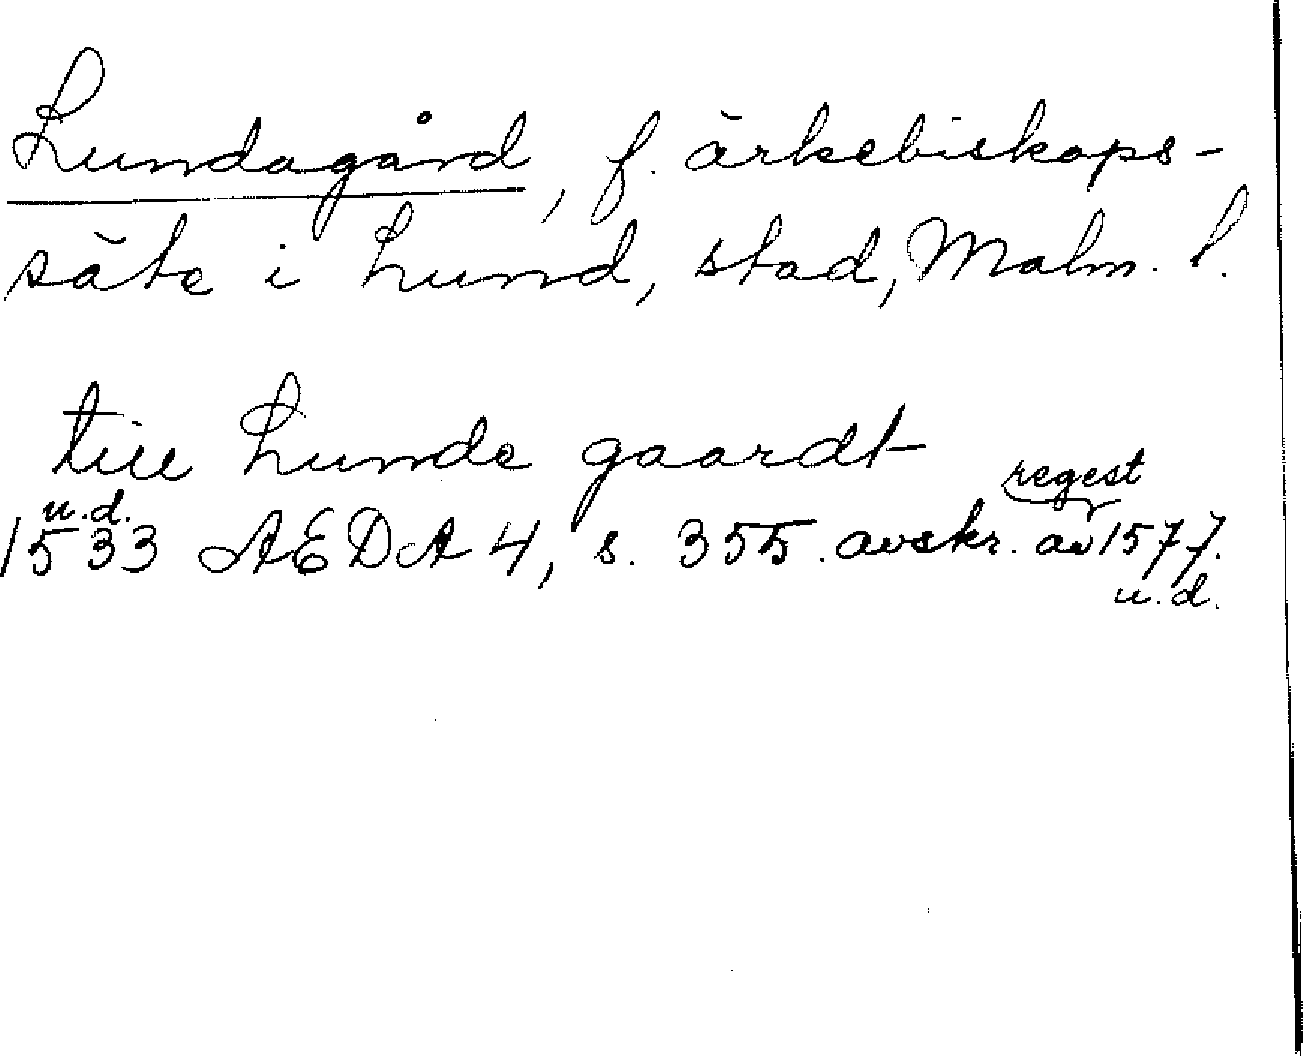 Lundagård, f. ärkebiskops-
säte i Lund, stad, Malm. l.
till Lunde gaardt
regest
u.d.
1533 AEDA 4, s. 355. avskr. av 1577.
u.d.